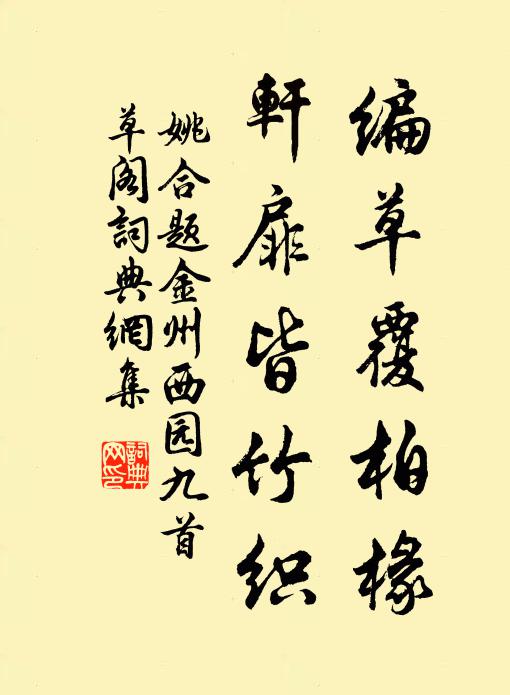 编草覆柏椽
軒扉皆竹织
姚合题金州西园九首
草阁詞典網集
詞典
网印